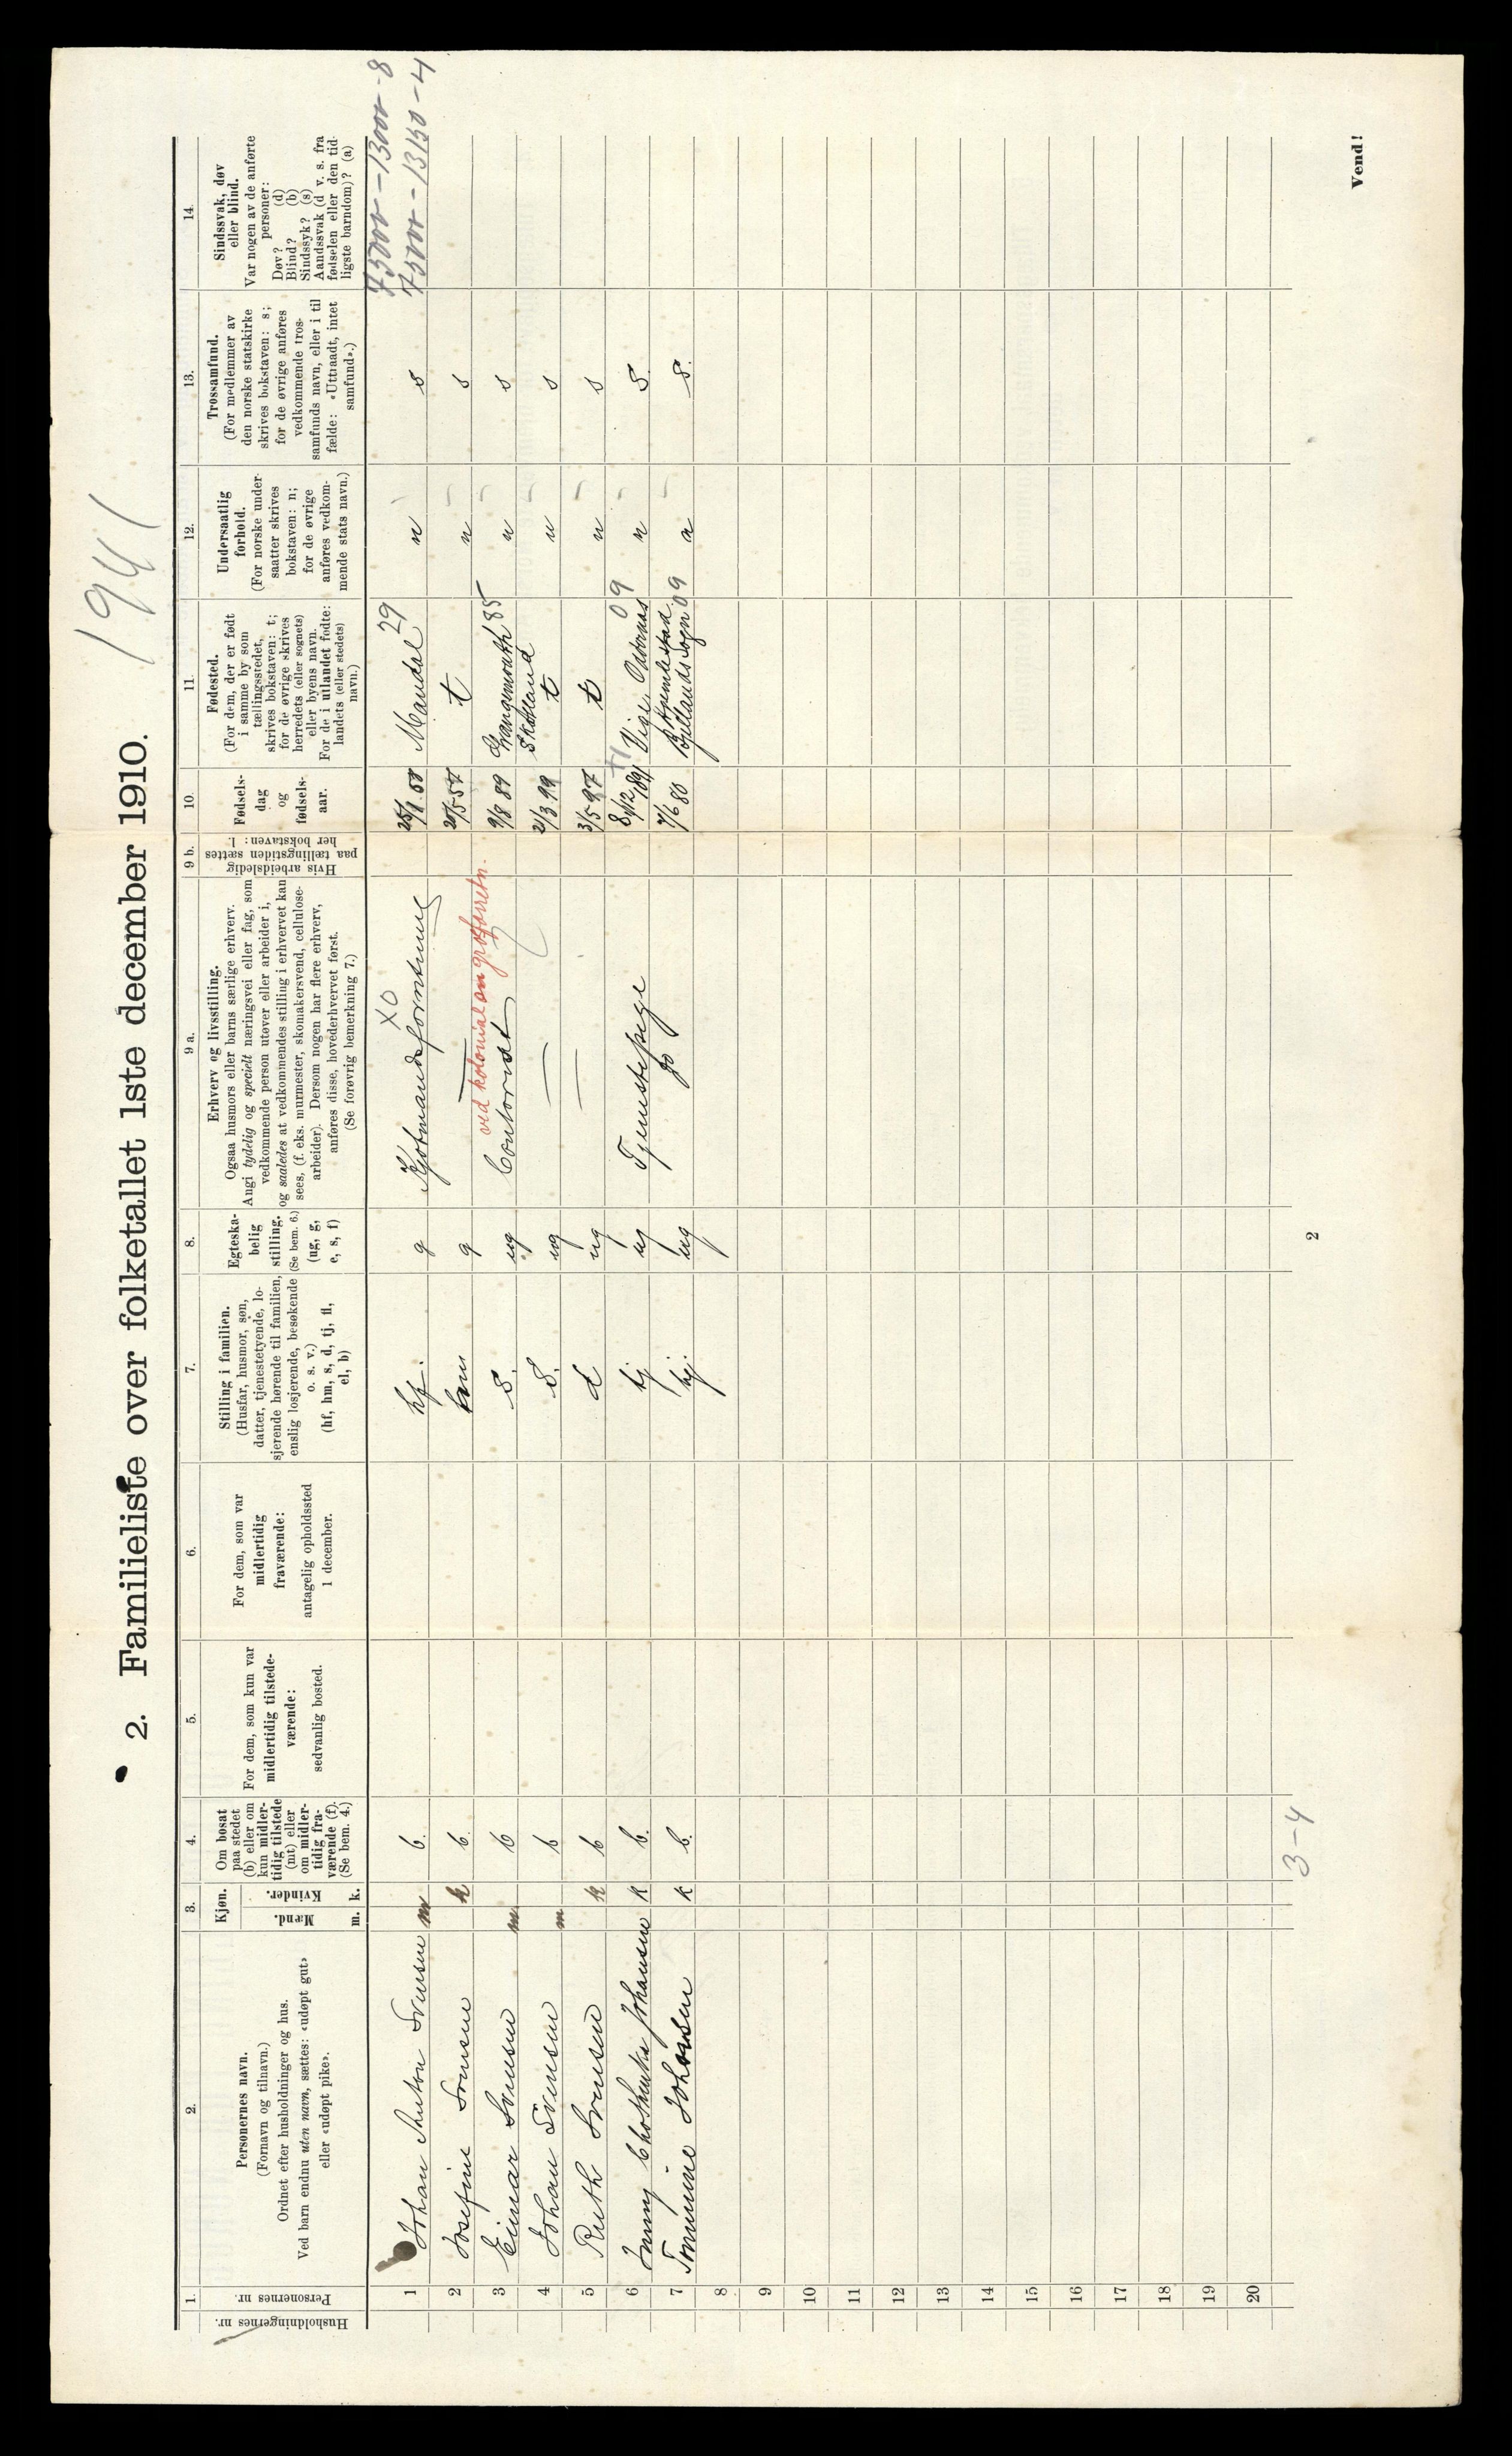 1941
2. Familieliste over folketallet 1ste december 1910.
Husholdningernes nr.
1.
Personernes nr.
2.
Personernes navn.
(Fornavn og tilnavn.)
Ordnet efter husholdninger og hus.
Ved barn endnu uten navn, sættes: «udøpt gut»
eller «udøpt pike».
3.
Kjøn.
Mænd.
Kvinder.
m. k.
4.
Om bosat
paa stedet
(b) eller om
kun midler-
tidig tilstede
(mt) eller
om midler-
tidig fra-
værende (f).
(Se bem. 4.)
5.
For dem, som kun var
midlertidig tilstede-
værende:
sedvanlig bosted.
6.
For dem, som var
midlertidig
fraværende:
antagelig opholdssted
1 december.
7.
Stilling i familien.
(Husfar, husmor, søn,
datter, tjenestetyende, lo-
sjerende hørende til familien,
enslig losjerende, besøkende
o. s. v.)
(hf, hm, s, d, tj, fl,
el, b)
8.
Egteska-
belig
stilling.
(Se bem. 6.)
(ug, g,
e, s, f)
9 a.
Erhverv og livsstilling.
Ogsaa husmors eller barns særlige erhverv.
Angi tydelig og specielt næringsvei eller fag, som
vedkommende person utøver eller arbeider i,
og saaledes at vedkommendes stilling i erhvervet kan
sees, (f. eks. murmester, skomakersvend, cellulose-
arbeider). Dersom nogen har flere erhverv,
anføres disse, hovederhvervet først.
(Se forøvrig bemerkning 7.)
9 b.
Hvis arbeidsledig
paa tællingstiden sættes
her bokstaven: l.
10.
Fødsels-
dag
og
fødsels-
aar.
11.
Fødested.
(For dem, der er født
i samme by som
tællingsstedet,
skrives bokstaven: t;
for de øvrige skrives
herredets (eller sognets)
eller byens navn.
For de i utlandet fødte:
landets (eller stedets)
navn.)
12.
Undersaatlig
forhold.
(For norske under-
saatter skrives
bokstaven: n;
for de øvrige
anføres vedkom-
mende stats navn.)
13.
Trossamfund.
(For medlemmer av
den norske statskirke
skrives bokstaven: s;
for de øvrige anføres
vedkommende tros-
samfunds navn, eller i til
fælde: «Uttraadt, intet
samfund».)
14.
Sindssvak, døv
eller blind.
Var nogen av de anførte
personer:
Døv? (d)
Blind? (b)
Sindssyk? (s)
Aandssvak (d v. s. fra
fødselen eller den tid-
ligste barndom)? (a)
1 Johan Anton Svensen m b. hf. g Kjøbmandsforretning XO Mandal 29 n s
2 Josefine Svensen k b. hm g t n s
ved kolonial en grosforretn.
3 Einar Svensen m b s. ug Contorist 9/8 89 Skotland 85 n s
4 Johan Svensen m b s. ug 21/3 99 t n s
5 Ruth Svensen k b d ug 3/5 97 t n s
6 Johansen k b. tj ug Tjenestepige 8/12 1891 Vige, Oddernes 09 n s.
7 Tomine Johansen k b. tj. ug do 7/6 80 Bjellands sogn 09 n s.
8
9
10
11
12
13
14
15
16
17
18
19
20
3-4
2
Vend!